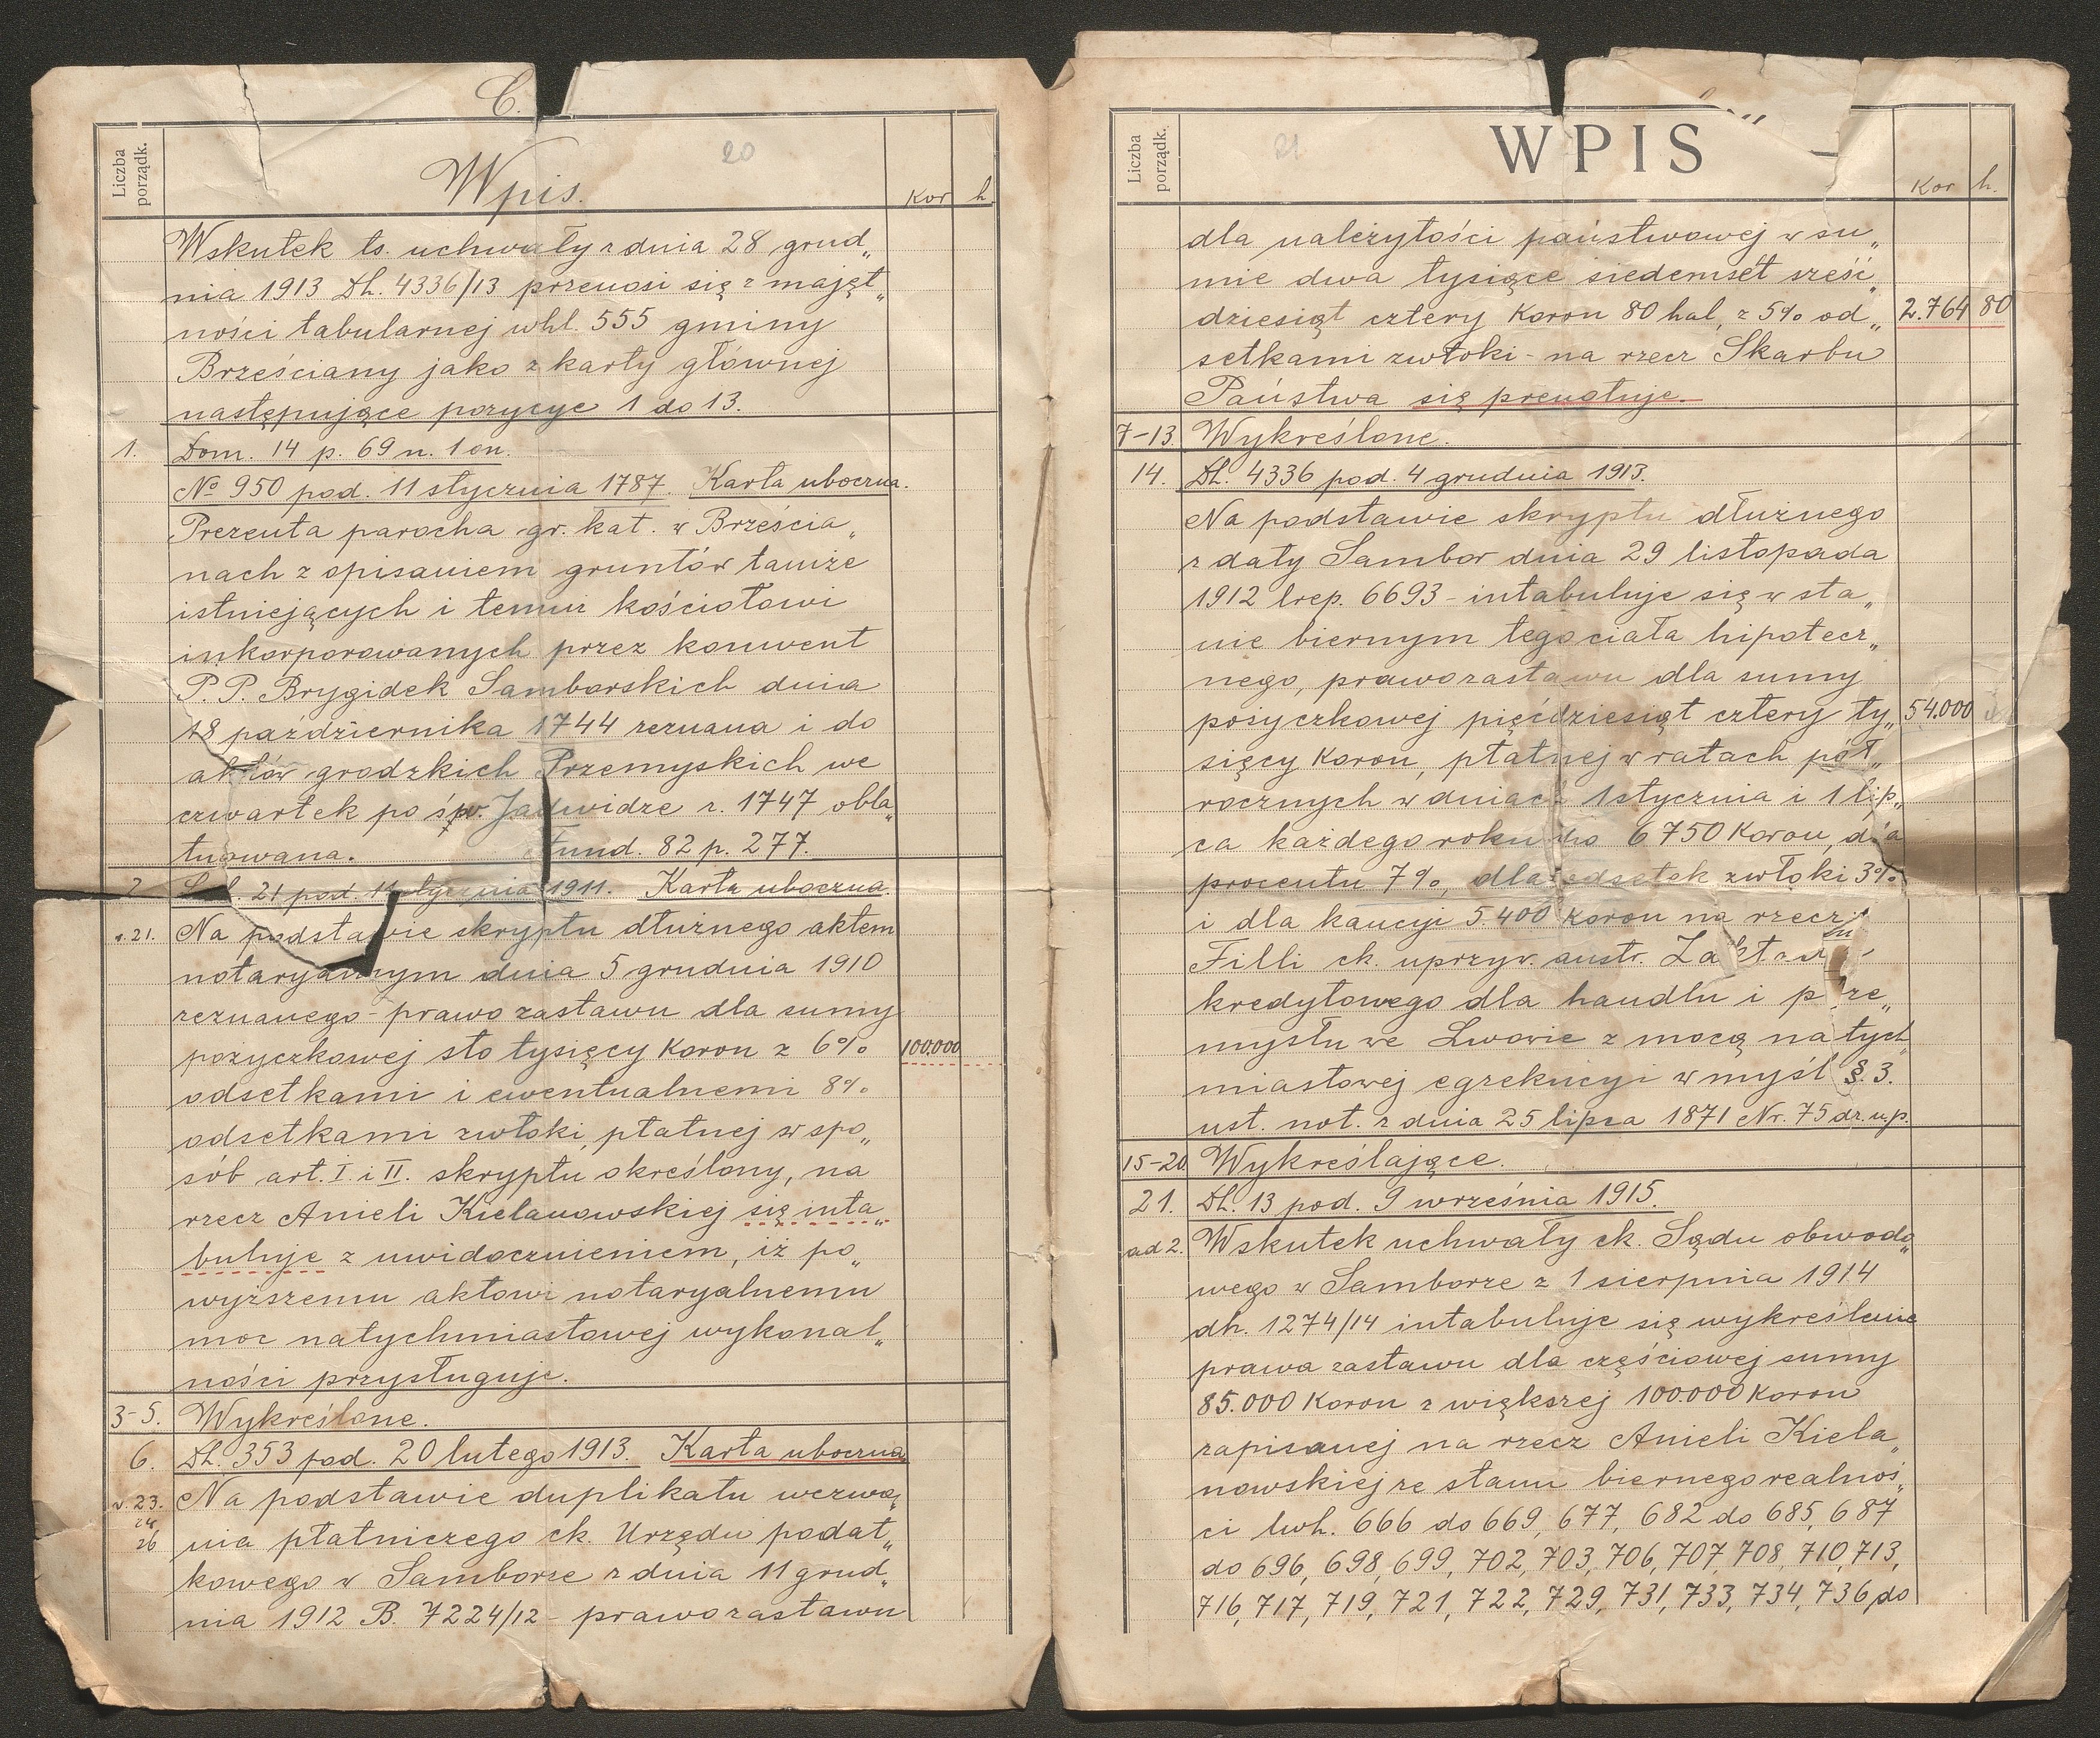 C.
Liczba porządk.
20
Wpis.
Kor h.
Wskutek ts. uchwały z dnia 28 grud„
nia 1913 Dh. 4336/13 przenosi się z mająt„
ności tabularnej whl. 555 gminy
Brześciany jako z karty głównej
następujące pozycye 1 do 13.
1. Dom. 14 p. 69 n. 1 on.
№ 950 pod. 11 stycznia 1787. Karta uboczna.
Prezenta parocha gr. kat. w Brześcia„
nach z opisaniem gruntów tamże
istniejących i temuż kościołowi
inkorporowanych przez konwent
P. P. Brygidek Samborskich dnia
18 października 1744 zeznana i do
aktów grodzkich Przemyskich we
czwartek po św. Jadwidze r. 1747 obla„
tnowana. fund. 82 p. 277.
2. 21 pod. stycznia 1911. Karta uboczna.
v. 21. Na podstawie skryptu dłużnego aktem
notaryalnym dnia 5 grudnia 1910
zeznanego - prawo zastawu dla sumy
pożyczkowej sto tysięcy Koron z 6% 100.000
odsetkami i ewentualnemi 8%
odsetkami zwłoki, płatnej w spo„
sób art. I. i II. skryptu określony, na
rzecz Anieli Kielanowskiej się inta„
buluje z uwidocznieniem, iż po„
wyższemu aktowi notaryalnemu
moc natychmiastowej wykonal„
ności przysługuje.
3-5. Wykreślone.
6. Dh. 353 pod. 20 lutego 1913. Karta uboczna.
v. 23. Na podstawie duplikatu wezwa„
24
26 nia płatniczego ck. Urzędu podat„
kowego w Samborze z dnia 11 grud„
nia 1912 B. 7224/12 - prawo zastawu
Liczba porządk.
21
WPIS
Kor h.
dla należytości państwowej w su„
mie dwa tysiące siedemsét sześć„
dziesiąt cztery Koron 80 hal, z 5% od„ 2.764 80
setkami zwłoki - na rzecz Skarbu
Państwa się prenotuje.
7-13. Wykreślone.
14. Dh. 4336 pod. 4 grudnia 1913.
Na podstawie skryptu dłużnego
z daty Sambor dnia 29 listopada
1912 lrep. 6693 - intabuluje się w sta„
nie biernym tego ciała hipotecz„
nego, prawo zastawu dla sumy
pożyczkowej pięćdziesiąt cztery ty„ 54.000
sięcy Koron, płatnej w ratach pół„
rocznych w dniach 1 stycznia i 1 lip„
ca każdego roku po 6750 Koron, dla
procentu 7%, dla odsetek zwłoki 3%
i dla kaucyi 5.400 koron na rzecz
Filli ck. uprzyw. austr. Zakładu
kredytowego dla handlu i prze„
mysłu we Lwowie z mocą natych„
miastowej egzekucyi w myśl §. 3.
ust. not. z dnia 25 lipca 1871 Nr. 75 dz. u. p.
15-20. Wykreślające.
21. Dh. 13 pod. 9 września 1915.
ad 2. Wskutek uchwały ck. Sądu obwodo„
wego w Samborze z 1 sierpnia 1914
dh. 1274/14 intabuluje się wykreślenie
prawa zastawu dla częściowej sumy
85.000 Koron z większej 100.000 Koron
zapisanej na rzecz Anieli Kiela„
nowskiej ze stanu biernego realnoś„
ci lwh. 666 do 669, 677, 682 do 685, 687
do 696, 698, 699, 702, 703, 706, 707, 708, 710, 713,
716, 717, 719, 721, 722, 729, 731, 733, 734, 736 do